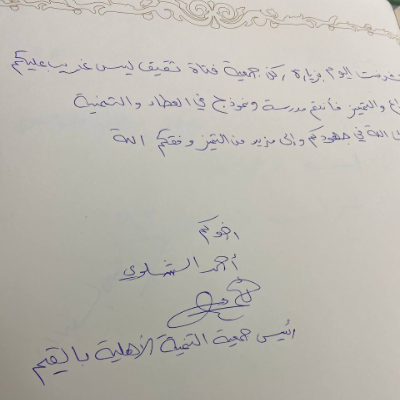 سعدت اليوم بزيارة ركن جمعية فتاة ثقيف ليس غريب عليكم
والتميز فأنتم مدرسة ونموذج في العطاء والتنمية
الله في جهودكم وإلى مزيد من التميز وفقكم الله
اخوكم
أحمد الشلوي
رئيس جمعية التنمية الأهلية بالقيم